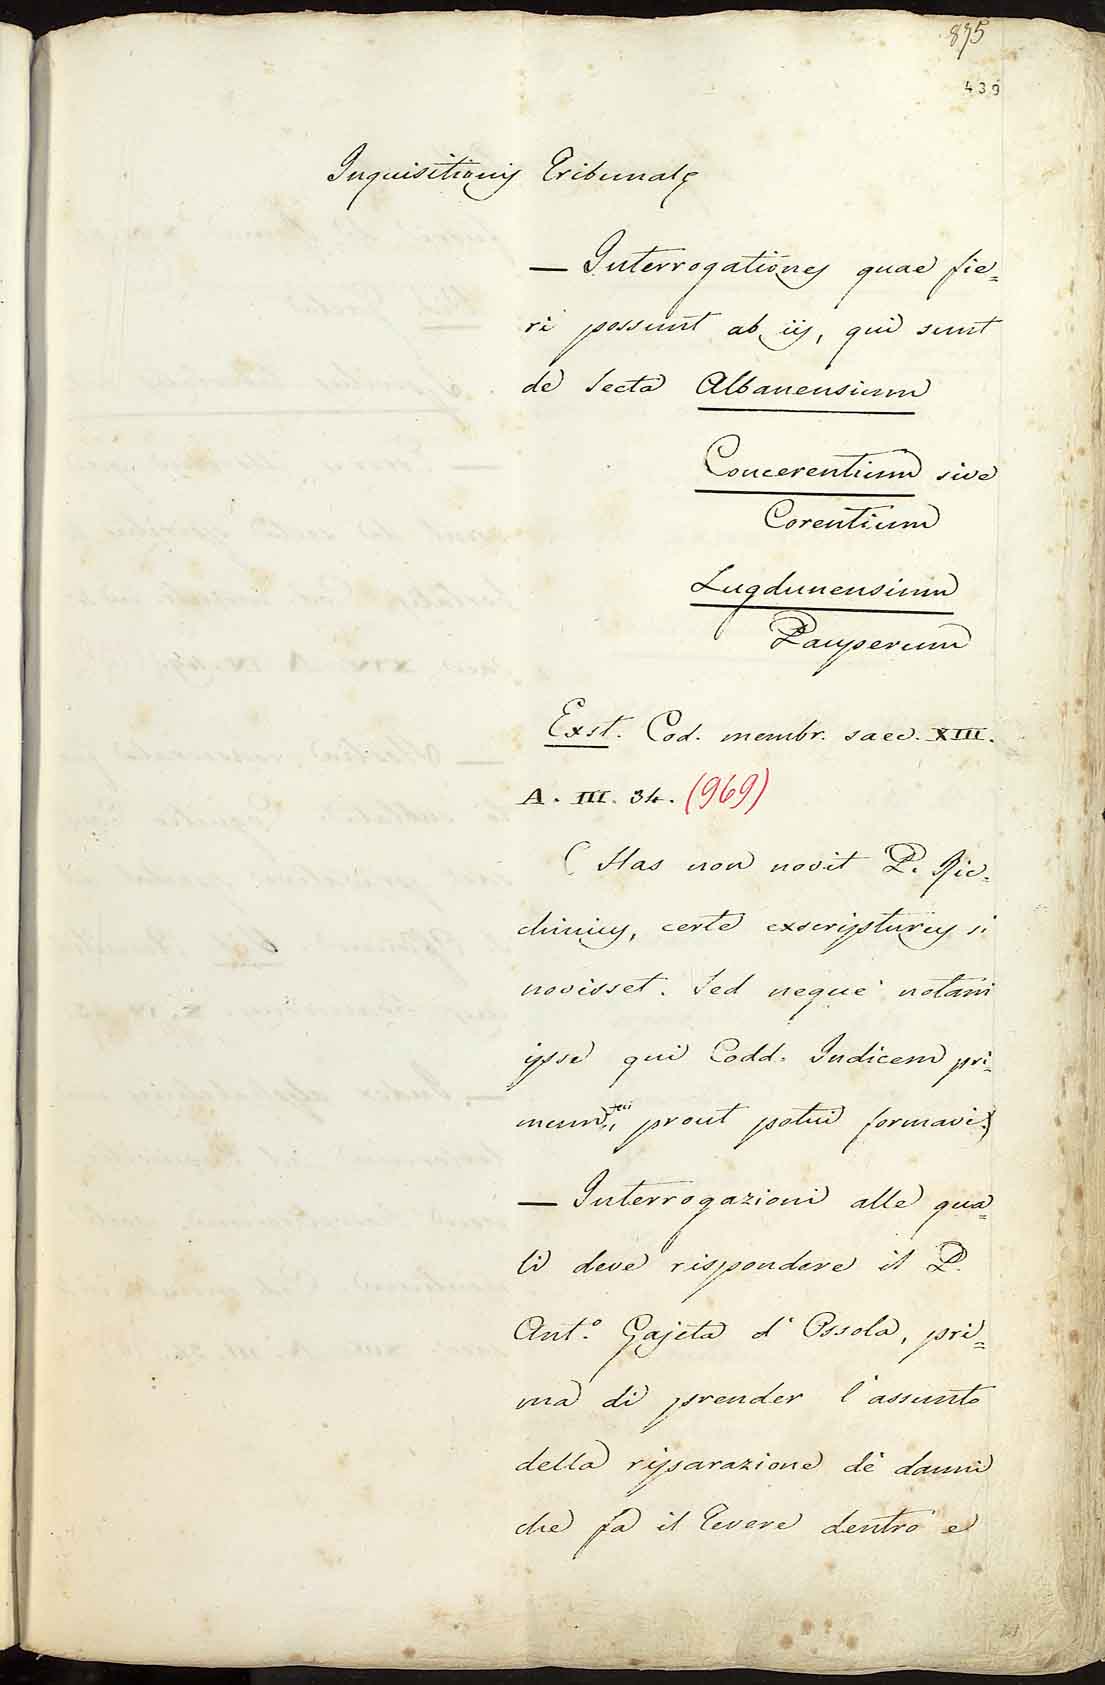 875
439
Inquisitionis Tribunale
— Interrogationes quae fie=
ri possunt ab iis, qui sunt
de Secta Albanensium
Concerentium sive
Corentium
Lugdunensium
Pauperum
Exst. Cod. membr. saec. XIII.
A. III. 34. (969)
(Has non novit P. Ric=
chinius, certe exscripturus si
novisset. Sed neque notavi
ipse qui Codd. Indicem pri=
mum, prout potui formavi.)
— Interrogazioni alle qua=
li deve rispondere il P.
Ant.º Gajeta d'Ossola, pri=
ma di prender l'assunto
della riparazione de' danni
che fa il Tevere dentro e